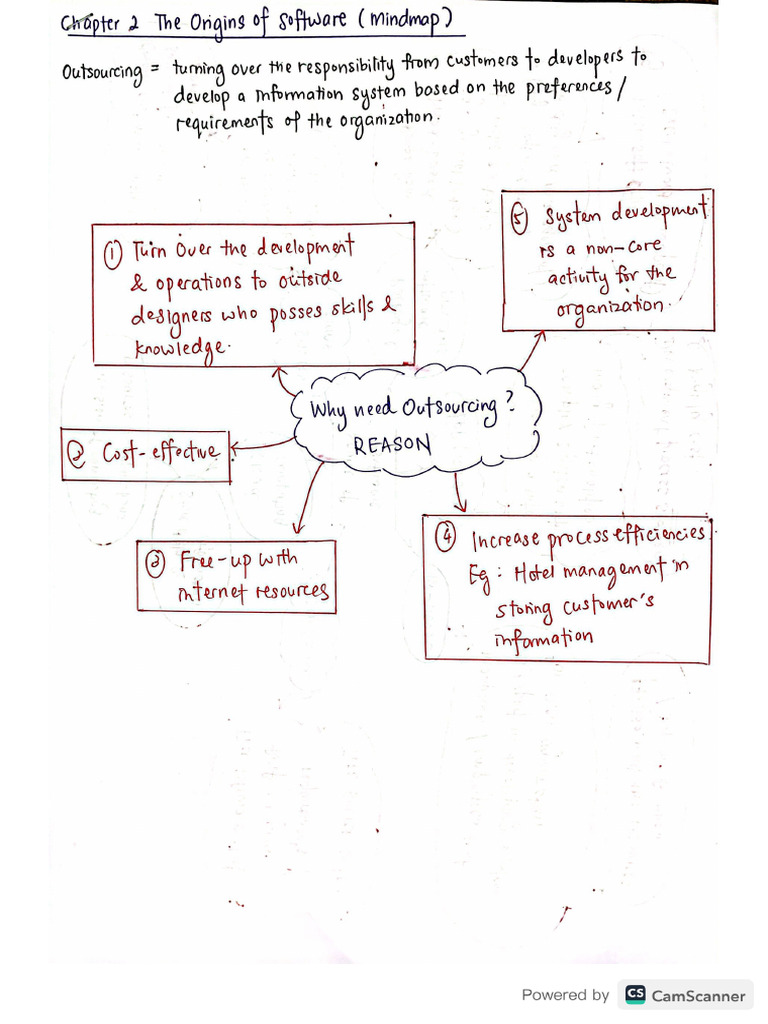 Chapter 2 The Origins of Software (Mindmap)
Outsourcing = turning over the responsibility from customers to developers to
develop a information system based on the preferences/
requirements of the organization.
① Turn Over the development
& operations to outside
designers who posses skills &
knowledge.
⑤ System development
is a non-core
activity for the
organization.
Why need Outsourcing?
REASON
② Cost-effective
③ Free-up with
internet resources
④ Increase process efficiencies
Eg: Hotel management in
storing customer's
information
Powered by CS CamScanner